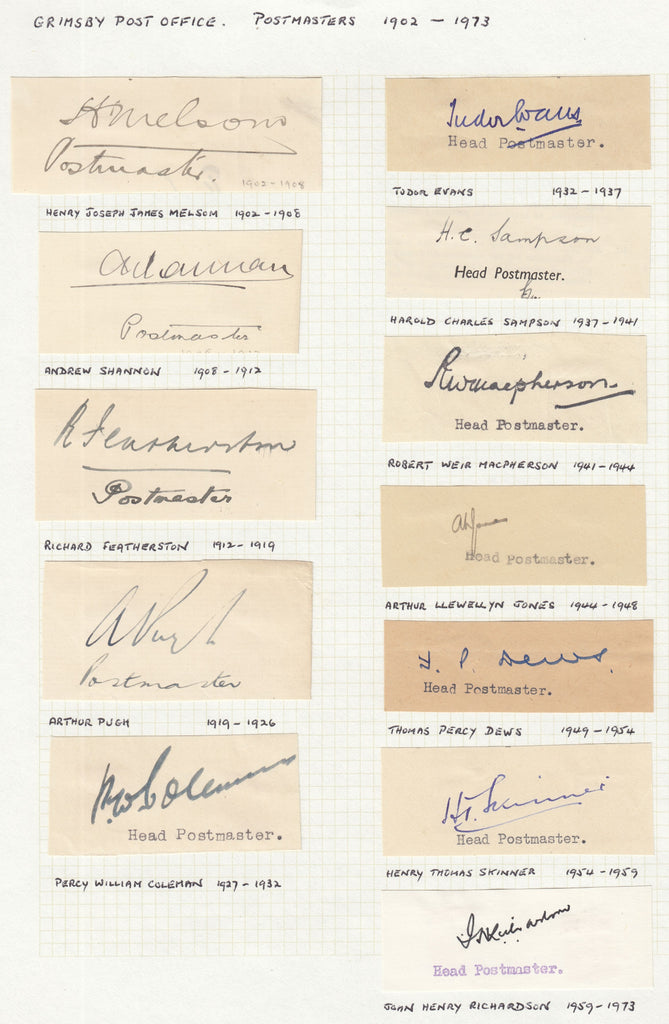 GRIMSBY POST OFFICE. POSTMASTERS 1902 - 1973
H Melsom
Postmaster.
1902-1908
HENRY JOSEPH JAMES MELSOM 1902-1908
Postmaster
1908-1912
ANDREW SHANNON 1908-1912
R Featherston
Postmaster
RICHARD FEATHERSTON 1912-1919
A Pugh
Postmaster
ARTHUR PUGH 1919-1926
P.W Coleman
Head Postmaster.
PERCY WILLIAM COLEMAN 1927-1932
Tudor Evans
Head Postmaster.
TUDOR EVANS 1932-1937
H. C. Sampson
Head Postmaster.
HAROLD CHARLES SAMPSON 1937-1941
RWMacpherson
Head Postmaster.
ROBERT WEIR MACPHERSON 1941-1944
Head Postmaster.
ARTHUR LLEWELLYN JONES 1944-1948
T. P. Dews.
Head Postmaster.
THOMAS PERCY DEWS 1949-1954
H.T. Skinner
Head Postmaster.
HENRY THOMAS SKINNER 1954-1959
J H Richardson
Head Postmaster.
JOHN HENRY RICHARDSON 1959-1973